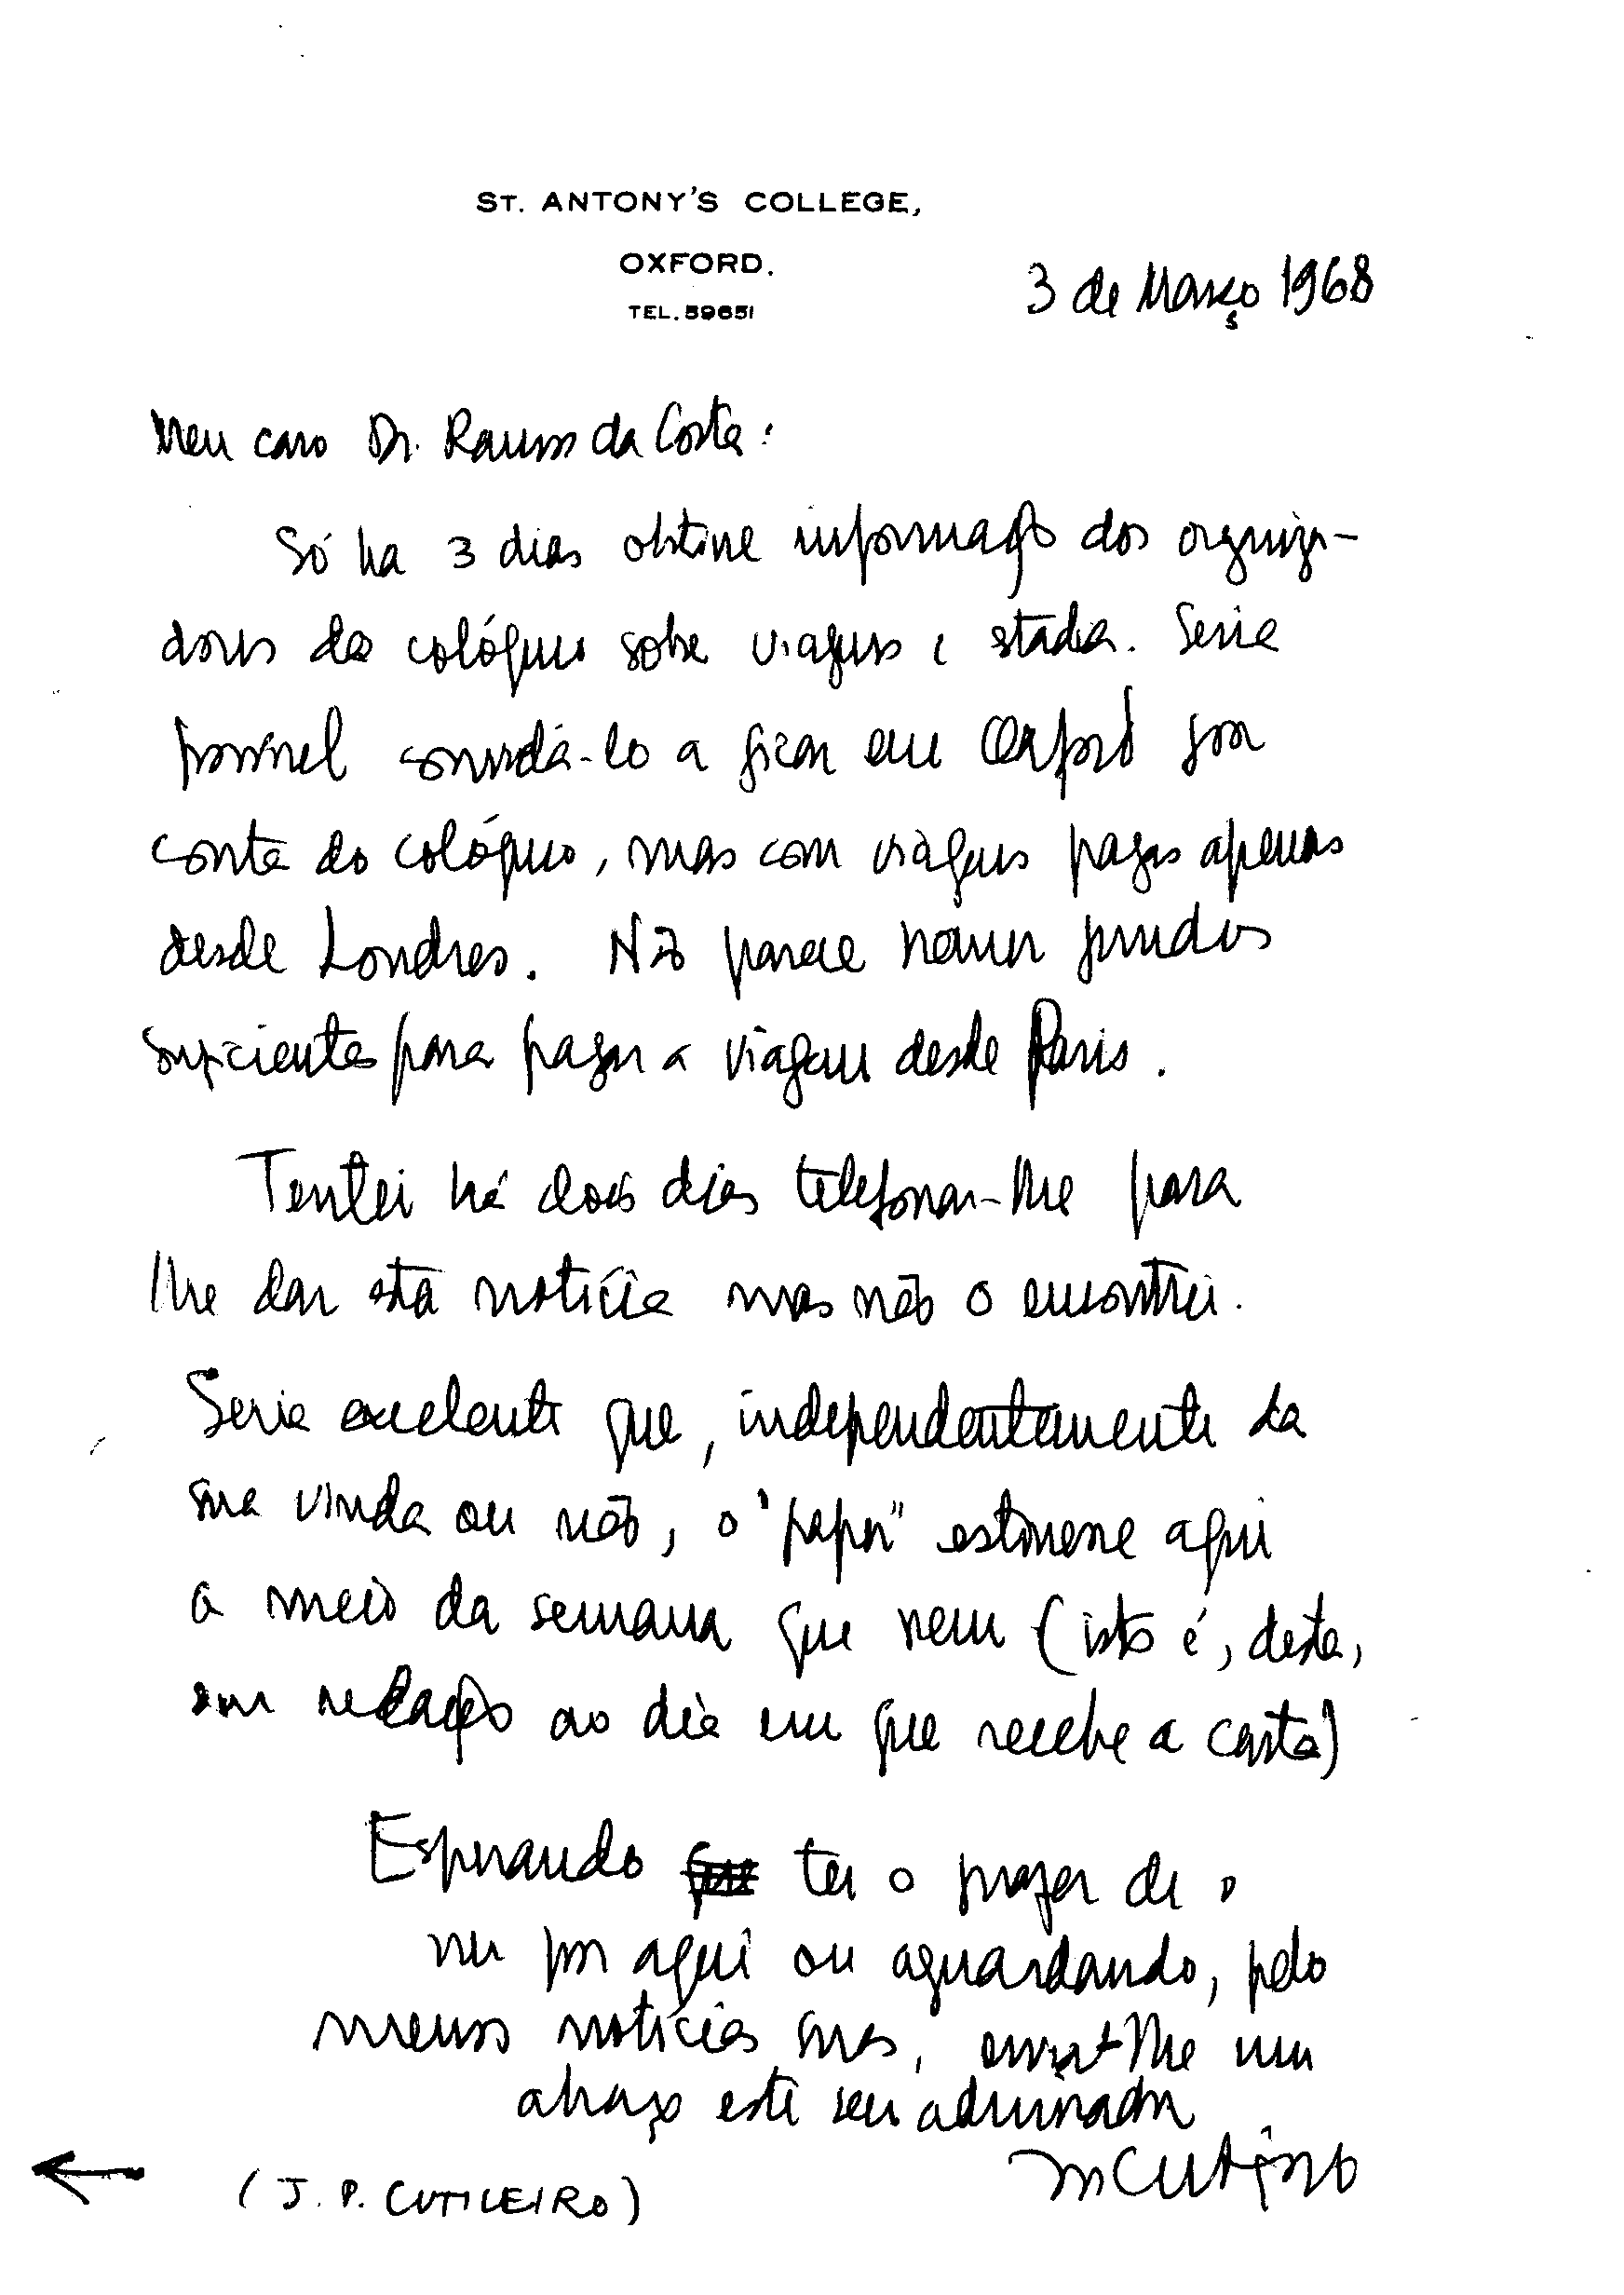 ST. ANTONY'S COLLEGE,
OXFORD.
TEL. 59651
3 de Março 1968
Meu caro Dr. Ramos da Costa:
Só ha 3 dias obtive informação dos organiza-
dores do colóquio sobre viagens e estadia. Seria
possível convidá-lo a ficar em Oxford por
conta do colóquio, mas com viagens pagas apenas
desde Londres. Não parece haver fundos
suficientes para pagar a viagem desde Paris.
Tentei há dois dias telefonar-lhe para
lhe dar esta notícia mas não o encontrei.
Seria excelente que, independentemente da
sua vinda ou não, o "paper" estivesse aqui
a meio da semana que vem (isto é, desta,
em relação ao dia em que recebe a carta)
Esperando que ter o prazer de o
ver por aqui ou aguardando, pelo
menos notícias suas, envia-lhe um
abraço este seu admirador
(J. P. CUTILEIRO)